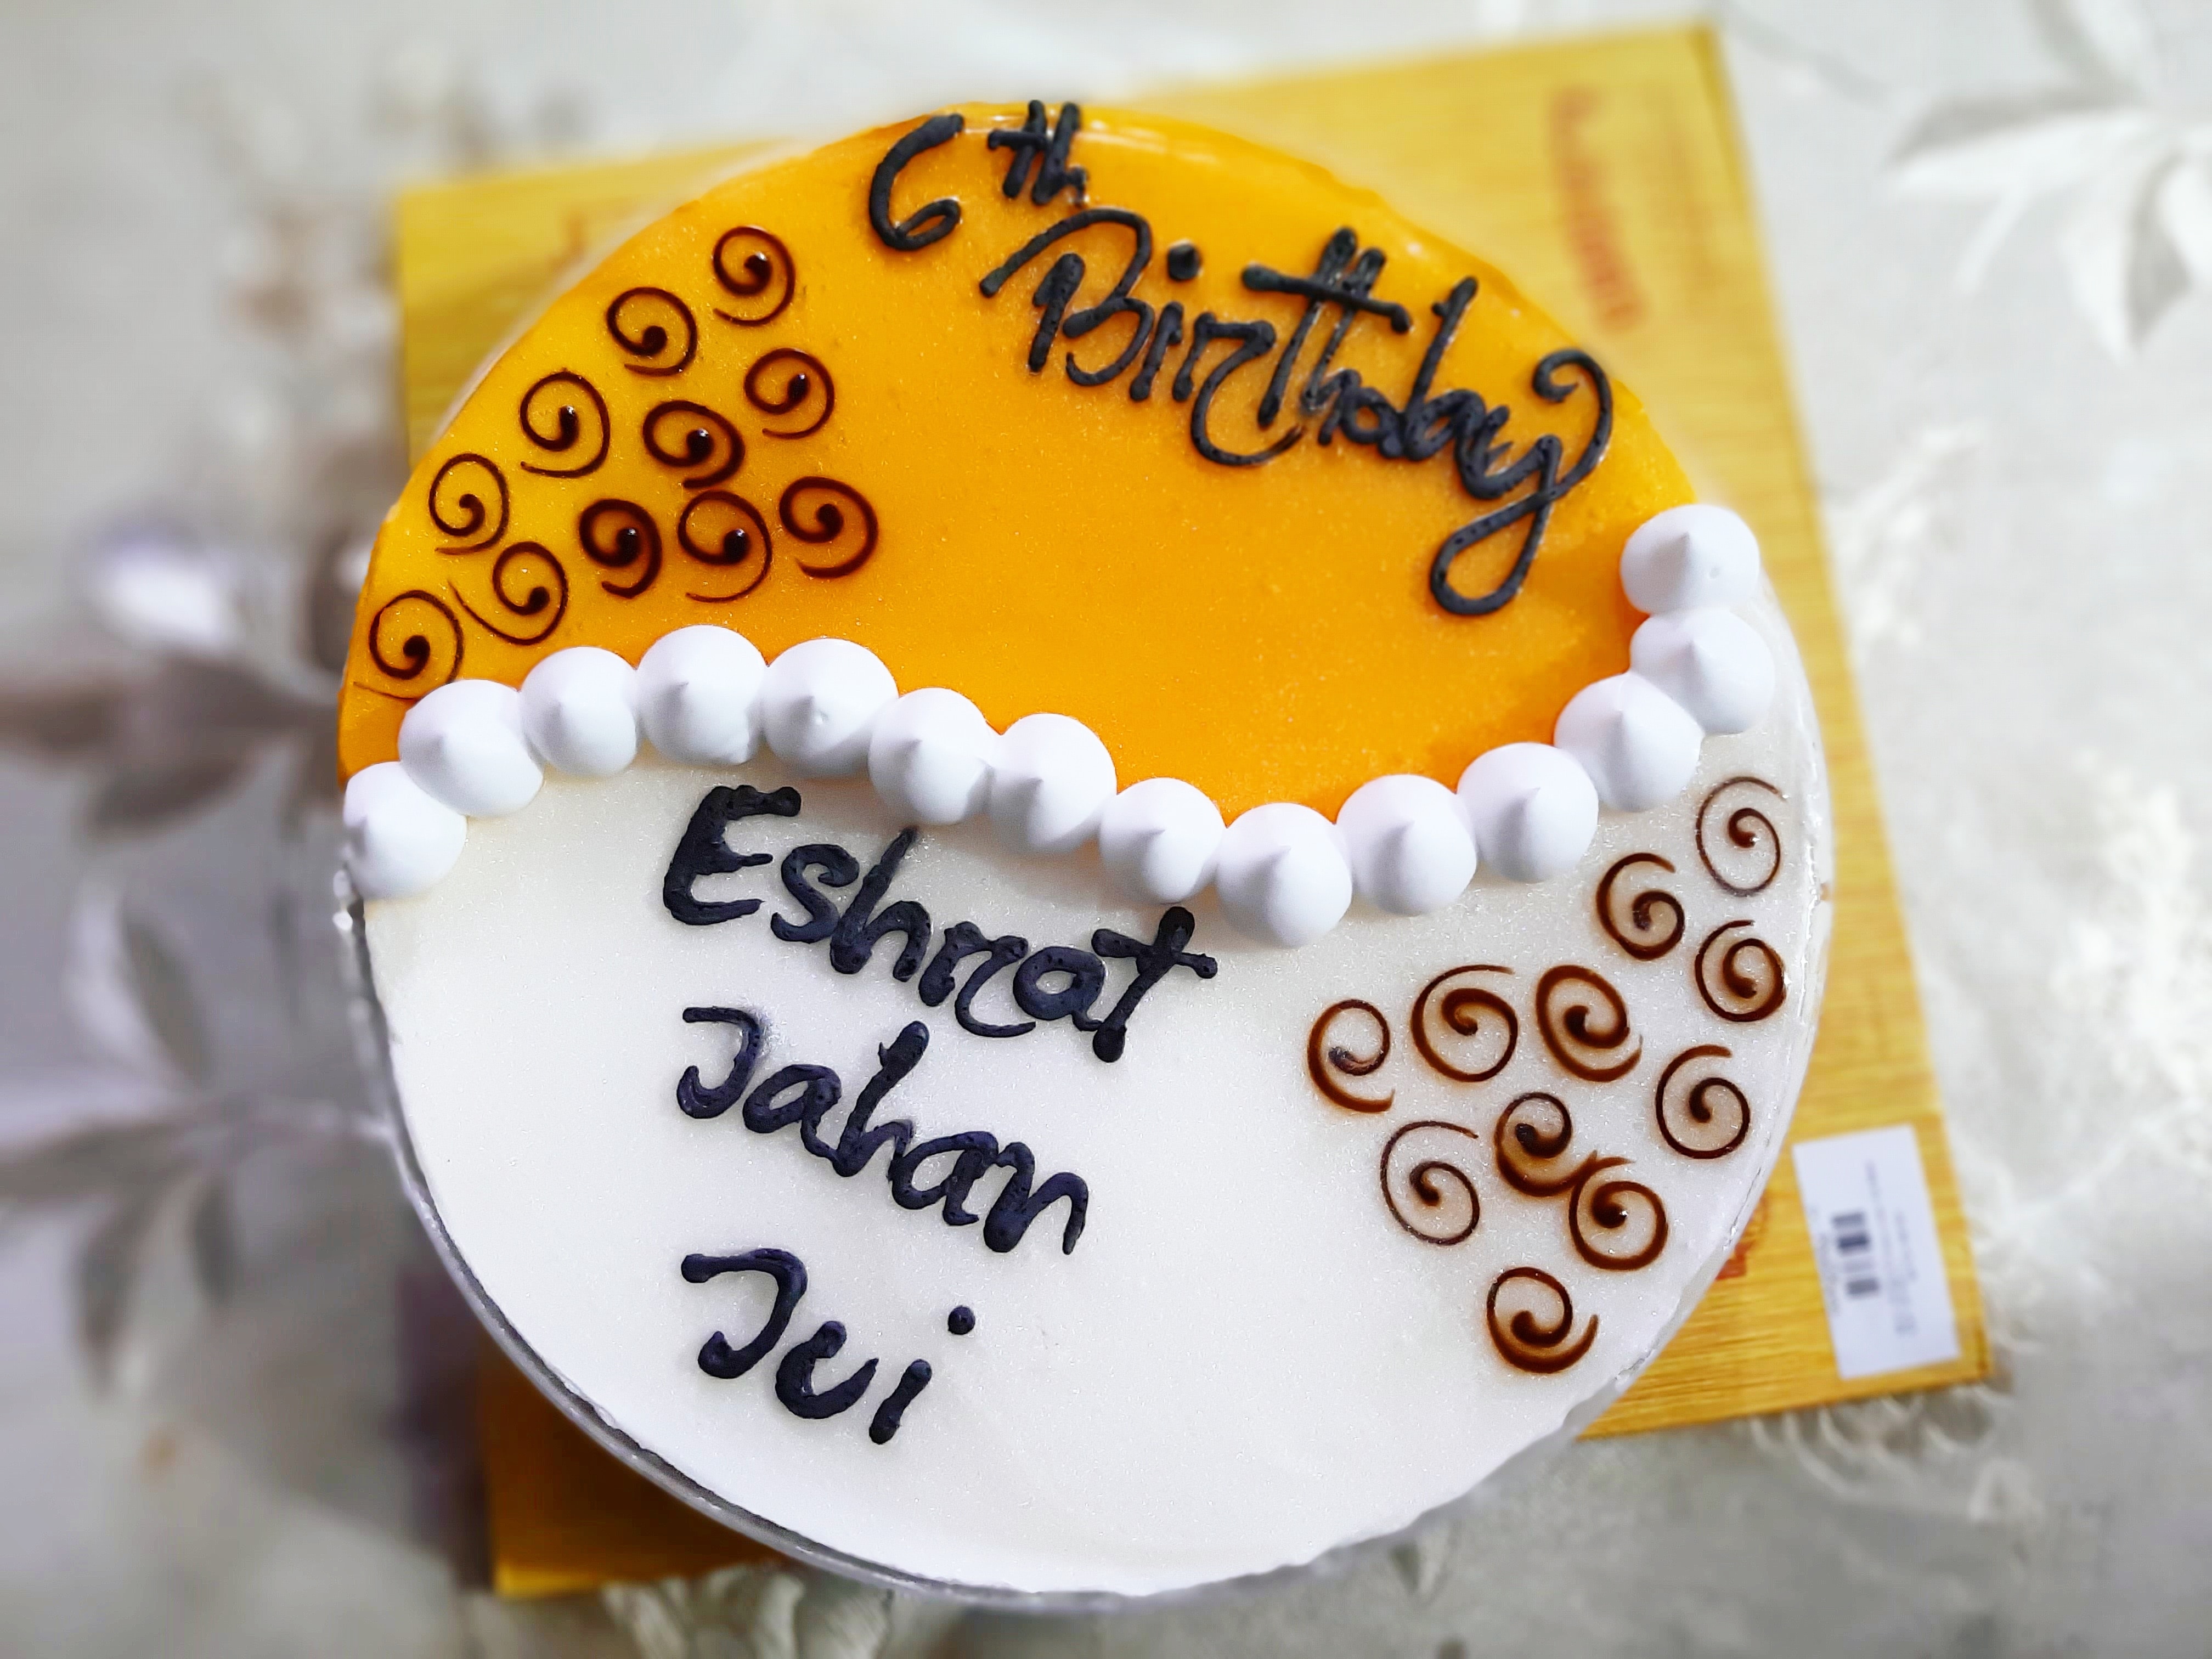 6th
Birthday
Eshrat
Jahan
Jui